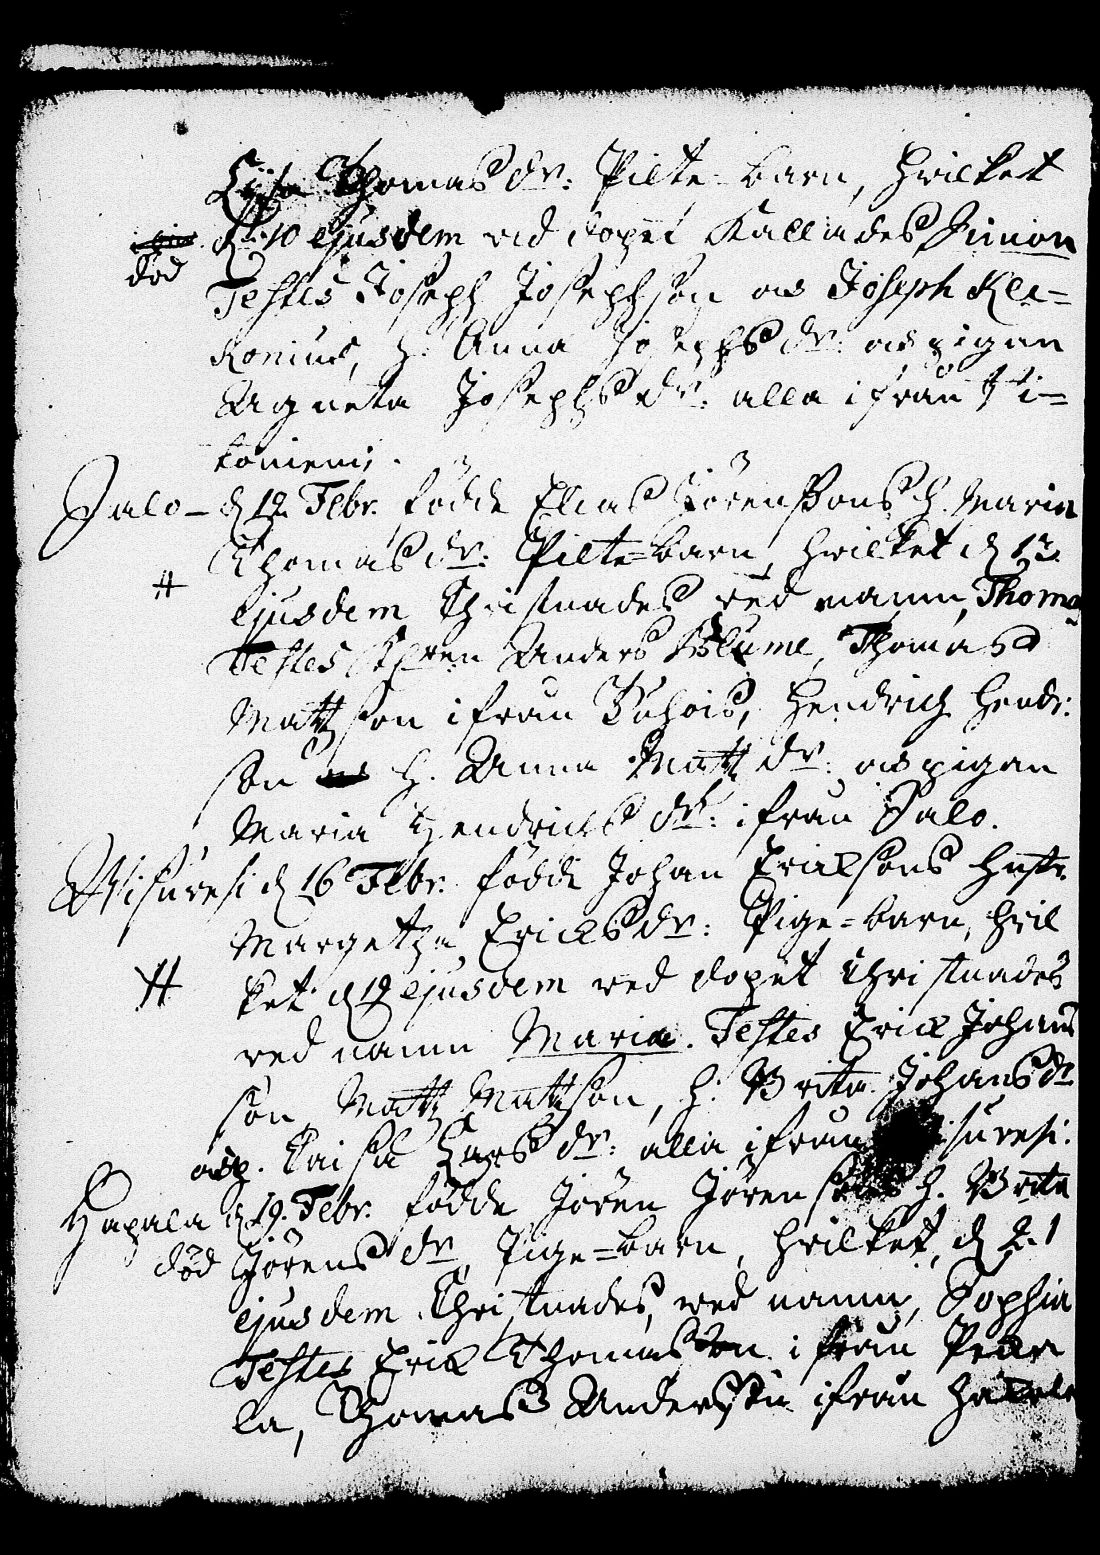 Lisa Thomas dr: Pilte-barn, hvilket
d. 10 ejusdem ved dopet Kallades Simon
död
Testes Joseph Josephson os Joseph Kle=
konius, h. Anna Josephs dr: os pigan
Agneta Josephs dr: alla ifrån Ti=
koniemi.
Salo - d 12 Febr. födde Elias Jörenssons h. Maria
Thomas dr: Pilte=barn, hvilket d 13
ejusdem Christnades ved namn, Thomas
Testes Anders Blume, Thomas
Mattsson ifrån Puhois, Hendrich Hendr:
son h. Anna Matts dr: os pigan
Maria Hendrichs dr: ifrån Salo.
Wisuresi d 16 Febr. födde Johan Eriksons hustr.
Margetha Ericks dr: Pige=barn, hvil
ket d 19 ejusdem ved dopet Christnades
ved namn Maria. Testes Erick Johans
son, Matts Mattsson, h. Brita Johans dr
os p. Caisa Lars dr: alla ifrån isuresi.
Hapala d 19. Febr. födde Jören Jörenssons h. Brita
död Jörens dr, Pige=barn, hvilket, d 21
ejusdem Christnades, ved namn, Sophia
Testes Erick Thomasson ifrån Pekka
la, Thomas Andersson ifrån